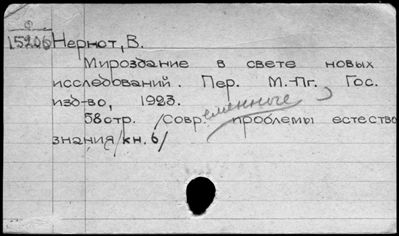 15206 Нернст, В.
Мироздание в свете новых
исследований. Пер. М.-Пг., Гос.
изд-во, 1923.
58стр. /Современные проблемы естество
знания/кн. 6/